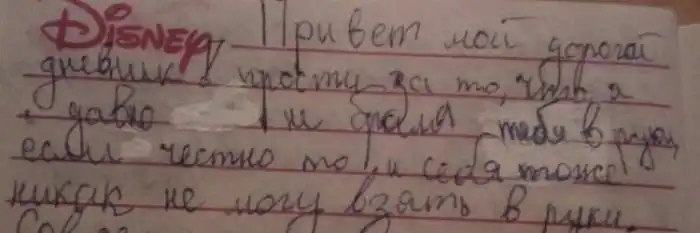 DISNEY Привет мой дорогой
дневник! прости за то, что я
давно не брала тебя в руки
если честно то, и себя тоже
никак не могу взять в руки.